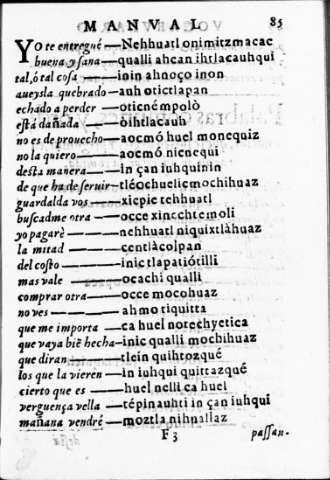 MANVAL 85
YO te entregué — Nehhuatl onimitzmacac
buena y sana — qualli ahcan ihtlacauhqui
tal, ó tal cosa — inin ahnoço inon
aueysla quebrado — auh otictlapan
echado a perder — oticnémpolò
està dañada — oihtlacauh
no es de prouecho — aocmó huel monequiz
no la quiero — aocmó nicnequi
desta manera — in çan iuhquinin
de que ha de seruir — tléochueliçmochihuaz
guardalda vos — xicpie tehhuatl
buscadme otra — occe xinechtemoli
yo pagarè — nehhuatl niquixtlàhuaz
la mitad — çentlàcolpan
del costo — inic tlapatiótilli
mas vale — ocachi qualli
comprar otra — occe mocohuaz
no ves — ahmo tiquitta
que me importa — ca huel notechyetica
que vaya biē hecha — inic qualli mochihuaz
que diran — tlein quihtozqué
los que la vieren — in iuhqui quittazqué
cierto que es — huel nelli ca huel
verguença vella — tépinauhti in çan iuhqui
mañana vendré — moztla nihuallaz
F 3 passan-